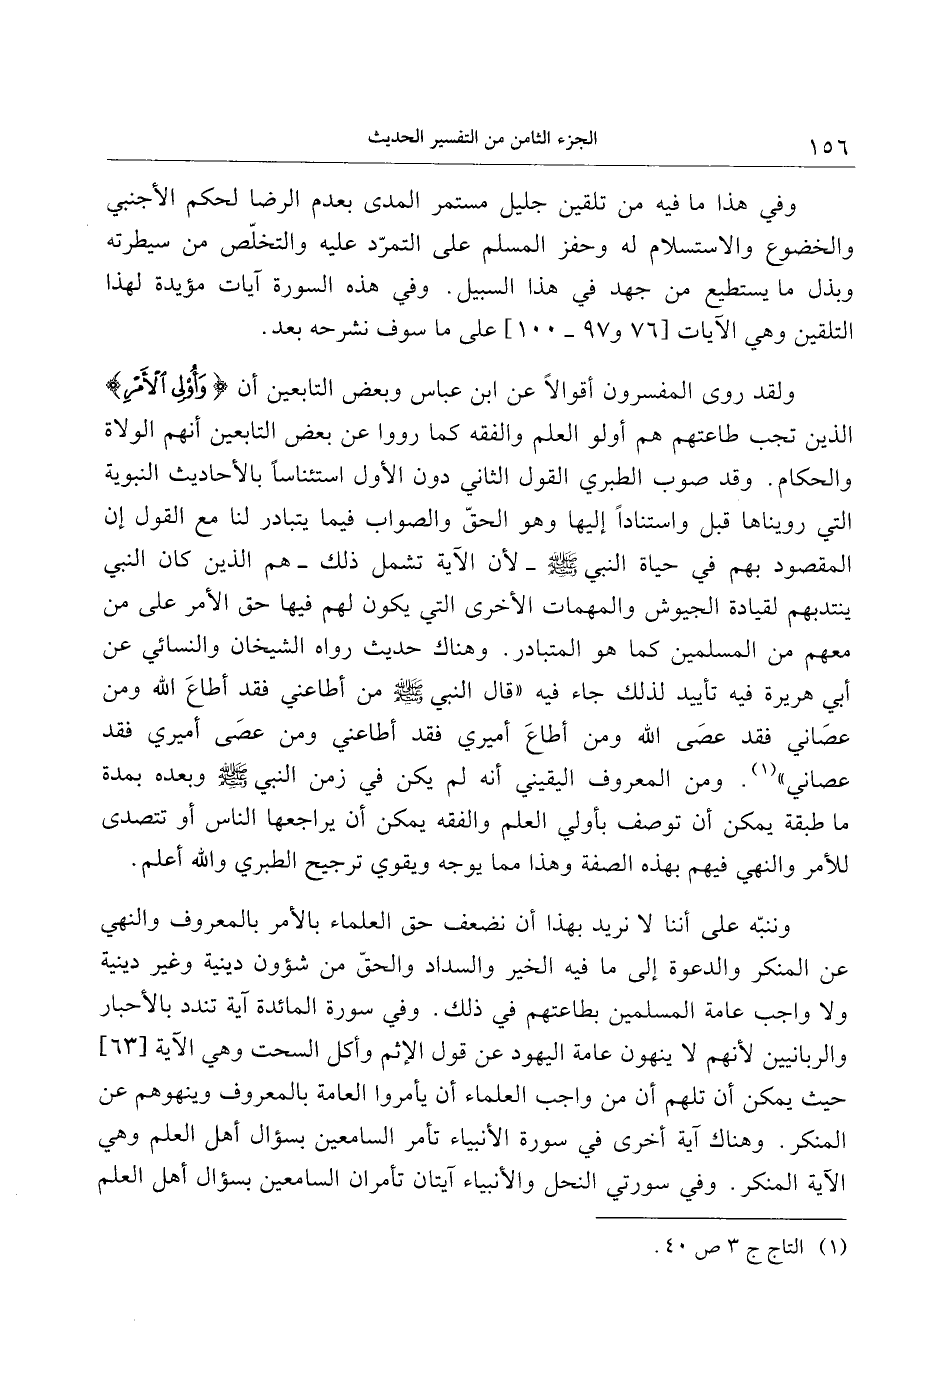 ١٥٦ الجزء الثامن من التفسير الحديث
وفي هذا ما فيه من تلقين جليل مستمر المدى بعدم الرضا لحكم الأجنبي
والخضوع والاستسلام له وحفز المسلم على التمرّد عليه والتخلّص من سيطرته
وبذل ما يستطيع من جهد في هذا السبيل. وفي هذه السورة آيات مؤيدة لهذا
التلقين وهي الآيات [٧٦ و٩٧ ـ ١٠٠] على ما سوف نشرحه بعد.
ولقد روى المفسرون أقوالاً عن ابن عباس وبعض التابعين أن ﴿وَأُوْلِي ٱلْأَمْرِ﴾
الذين تجب طاعتهم هم أولو العلم والفقه كما رووا عن بعض التابعين أنهم الولاة
والحكام. وقد صوب الطبري القول الثاني دون الأول استئناساً بالأحاديث النبوية
التي رويناها قبل واستناداً إليها وهو الحقّ والصواب فيما يتبادر لنا مع القول إن
المقصود بهم في حياة النبي ﷺ ـ لأن الآية تشمل ذلك ـ هم الذين كان النبي
ينتدبهم لقيادة الجيوش والمهمات الأخرى التي يكون لهم فيها حق الأمر على من
معهم من المسلمين كما هو المتبادر. وهناك حديث رواه الشيخان والنسائي عن
أبي هريرة فيه تأييد لذلك جاء فيه «قال النبي ﷺ من أطاعني فقد أطاعَ الله ومن
عصَاني فقد عصَى الله ومن أطاعَ أميري فقد أطاعني ومن عصَى أميري فقد
عصاني»(١). ومن المعروف اليقيني أنه لم يكن في زمن النبي ﷺ وبعده بمدة
ما طبقة يمكن أن توصف بأولي العلم والفقه يمكن أن يراجعها الناس أو تتصدى
للأمر والنهي فيهم بهذه الصفة وهذا مما يوجه ويقوي ترجيح الطبري والله أعلم.
وننبّه على أننا لا نريد بهذا أن نضعف حق العلماء بالأمر بالمعروف والنهي
عن المنكر والدعوة إلى ما فيه الخير والسداد والحقّ من شؤون دينية وغير دينية
ولا واجب عامة المسلمين بطاعتهم في ذلك. وفي سورة المائدة آية تندد بالأحبار
والربانيين لأنهم لا ينهون عامة اليهود عن قول الإثم وأكل السحت وهي الآية [٦٣]
حيث يمكن أن تلهم أن من واجب العلماء أن يأمروا العامة بالمعروف وينهوهم عن
المنكر. وهناك آية أخرى في سورة الأنبياء تأمر السامعين بسؤال أهل العلم وهي
الآية المنكر. وفي سورتي النحل والأنبياء آيتان تأمران السامعين بسؤال أهل العلم
(١) التاج ج ٣ ص ٤٠.